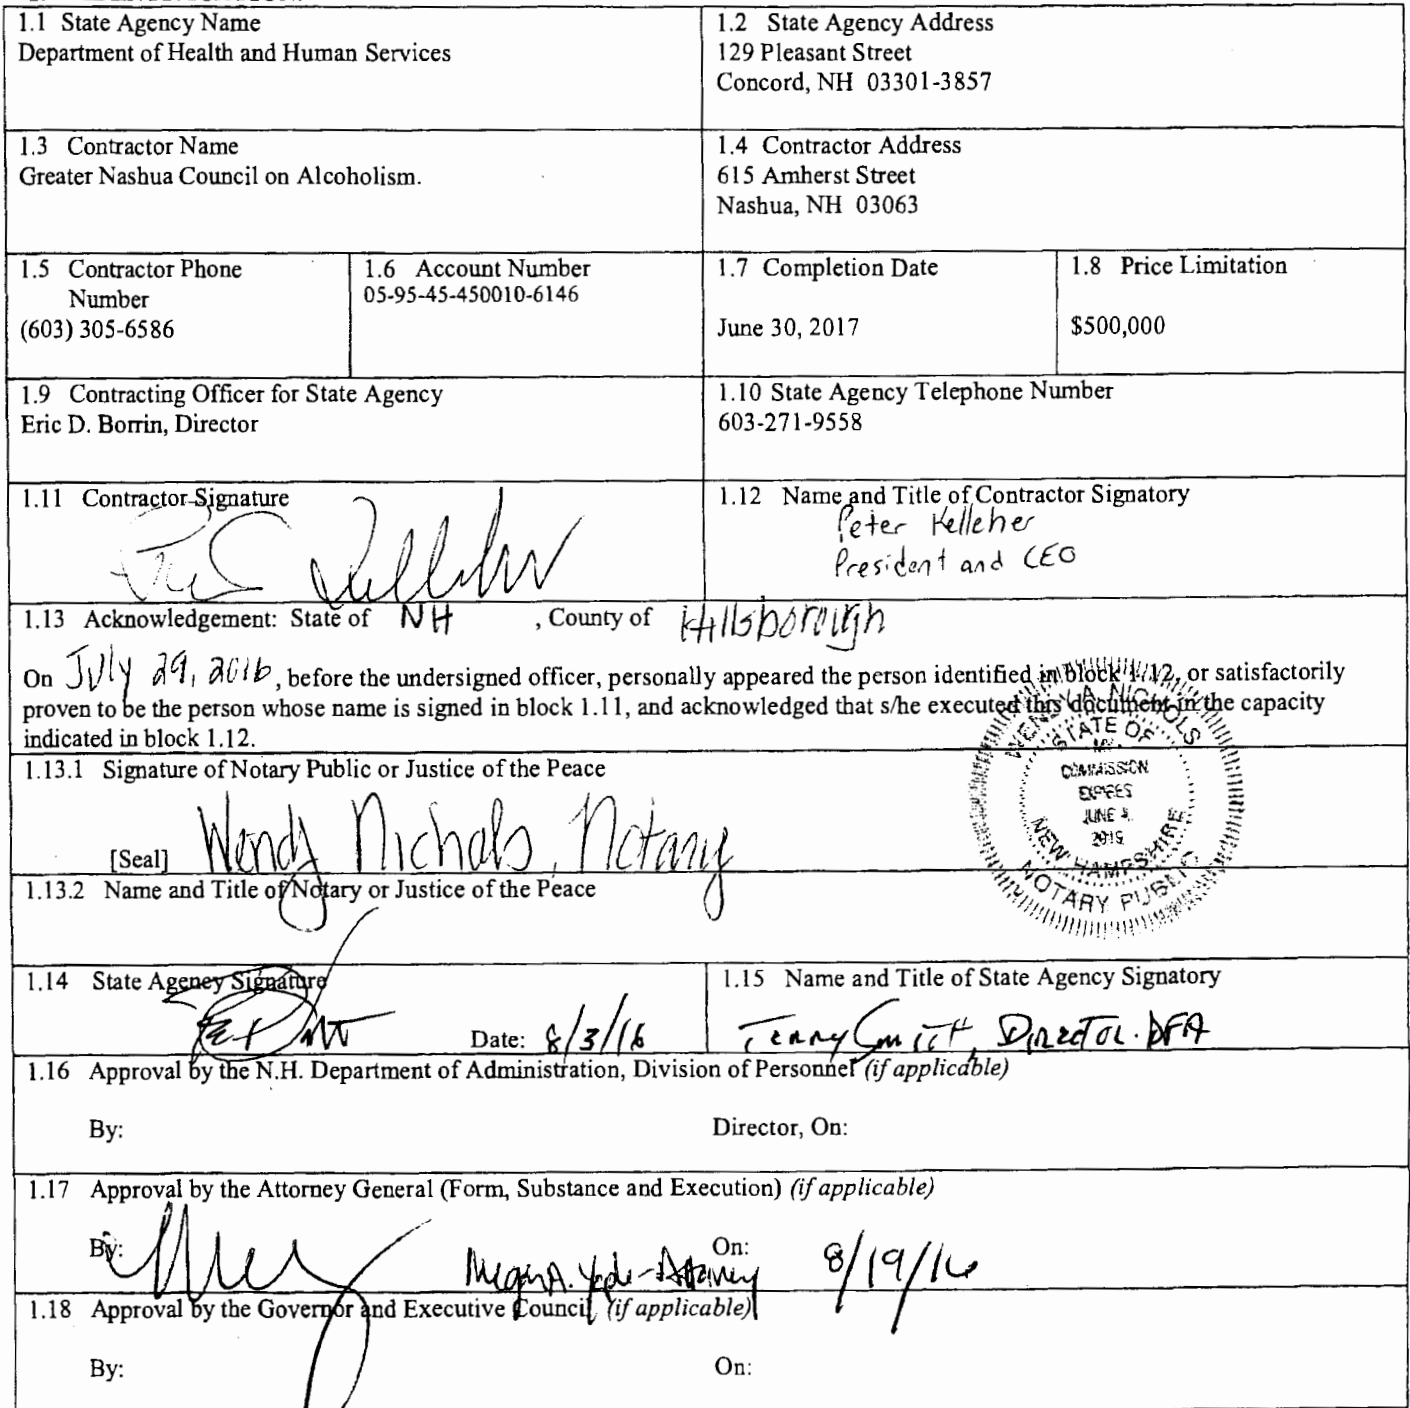 1.1 State Agency Name
Department of Health and Human Services
1.2 State Agency Address
129 Pleasant Street
Concord, NH 03301-3857
1.3 Contractor Name
Greater Nashua Council on Alcoholism.
1.4 Contractor Address
615 Amherst Street
Nashua, NH 03063
1.5 Contractor Phone
Number
(603) 305-6586
1.6 Account Number
05-95-45-450010-6146
1.7 Completion Date
June 30, 2017
1.8 Price Limitation
$500,000
1.9 Contracting Officer for State Agency
Eric D. Borrin, Director
1.10 State Agency Telephone Number
603-271-9558
1.11 Contractor Signature
1.12 Name and Title of Contractor Signatory
Peter Kelleher
President and CEO
1.13 Acknowledgement: State of NH , County of Hillsborough
On July 29, 2016, before the undersigned officer, personally appeared the person identified in block 1.12, or satisfactorily
proven to be the person whose name is signed in block 1.11, and acknowledged that s/he executed this document in the capacity
indicated in block 1.12.
1.13.1 Signature of Notary Public or Justice of the Peace
[Seal] Wendy Nichols, Notary
WENDY A. NICHOLS
STATE OF
MY
COMMISSION
EXPIRES
JUNE
NEW HAMPSHIRE
NOTARY PUBLIC
1.13.2 Name and Title of Notary or Justice of the Peace
1.14 State Agency Signature
Date: 8/3/16
1.15 Name and Title of State Agency Signatory
Terry Smith, Director. DFA
1.16 Approval by the N.H. Department of Administration, Division of Personnel (if applicable)
By: Director, On:
1.17 Approval by the Attorney General (Form, Substance and Execution) (if applicable)
By: Megan A. - Attorney On: 8/19/16
1.18 Approval by the Governor and Executive Council (if applicable)
By: On: